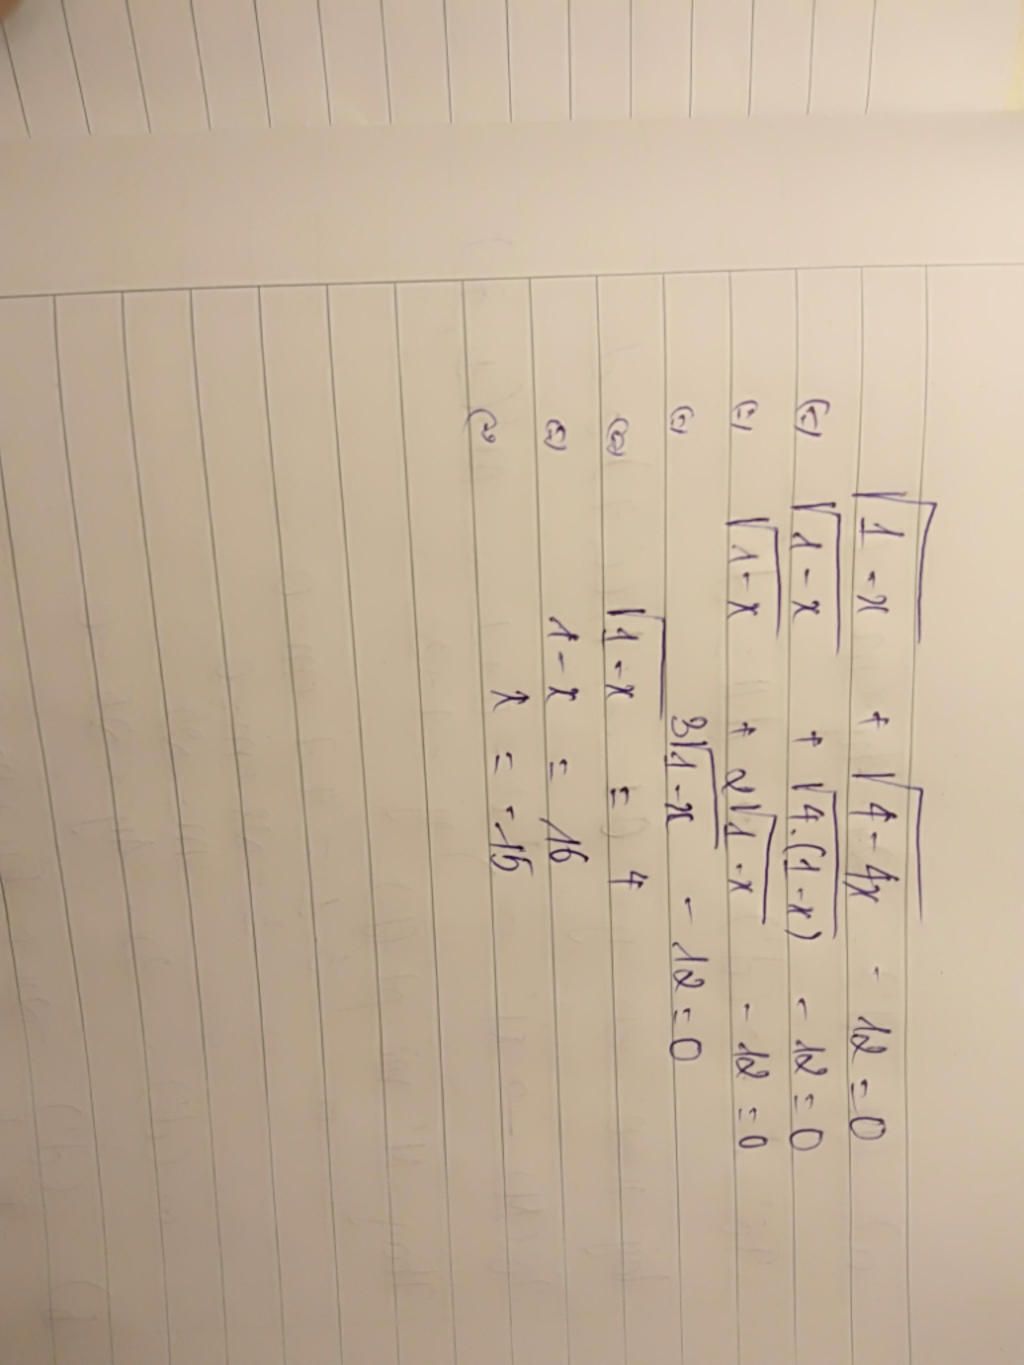 √(1-x) + √(4-4x) - 12 = 0
(=) √(1-x) + √(4.(1-x)) - 12 = 0
(=) √(1-x) + 2√(1-x) - 12 = 0
(=) 3√(1-x) - 12 = 0
(=) √(1-x) = 4
(=) 1-x = 16
(=) x = -15